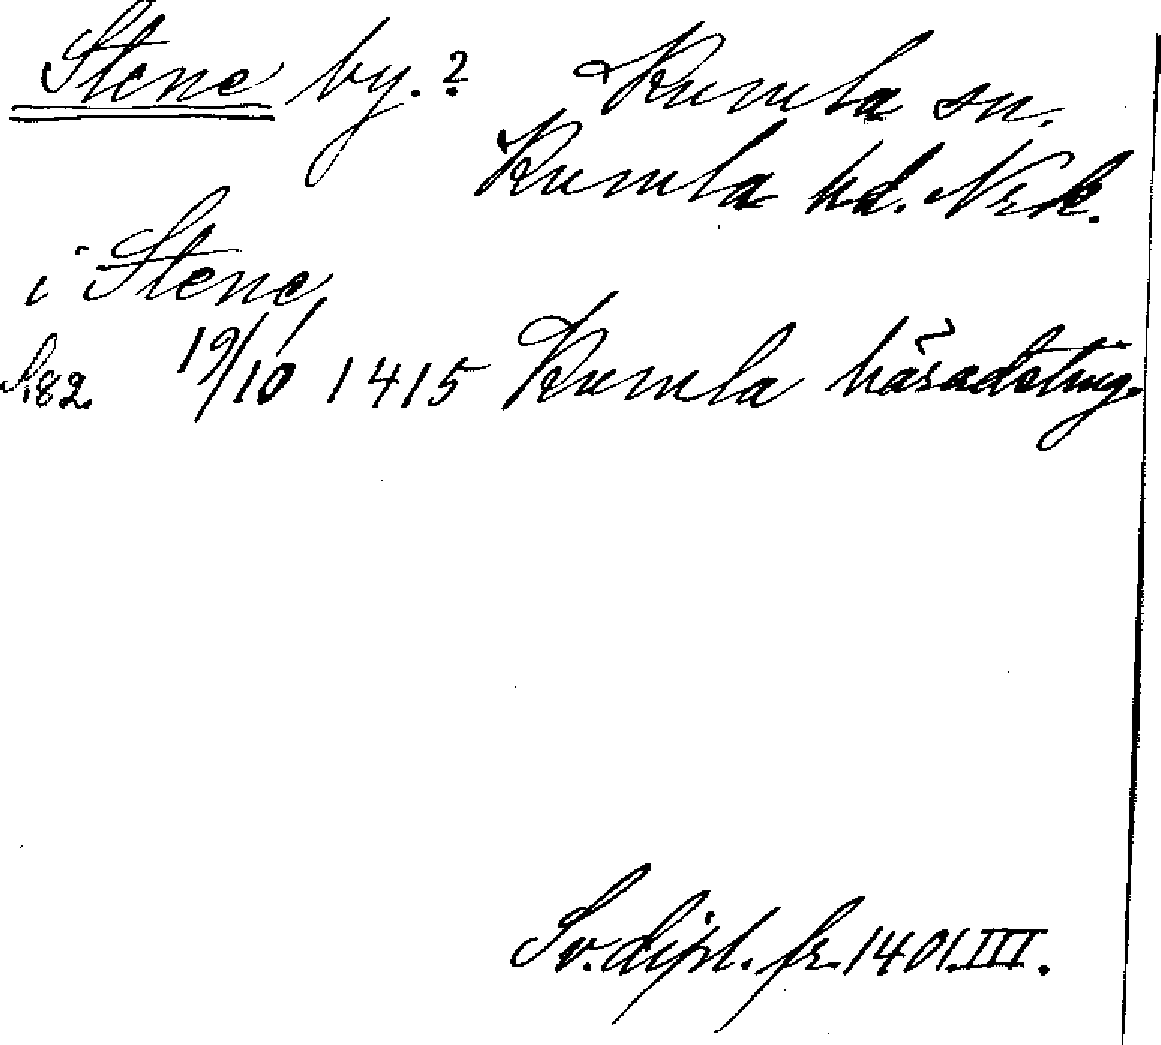 Stene by.? Kumla sn.
Kumla hd. Nrk.
i Stene,
S.82. 19/10 1415 Kumla häradsting.
Sv. dipl. fr. 1401. III.